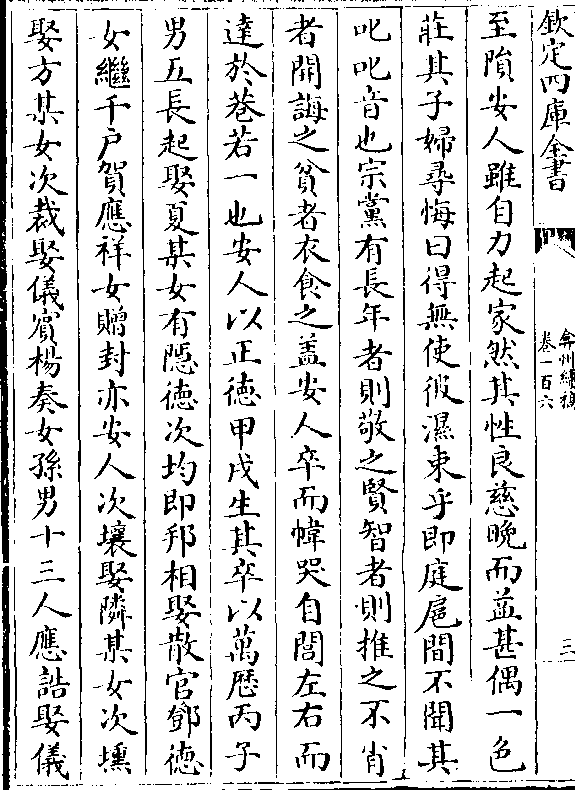 欽定四庫全書
弇州續稿
卷一百六
三
至隕安人雖自力起家然其性良慈晚而益甚偶一色
莊其子婦尋悔曰得無使彼濕束乎即庭扈間不聞其
叱叱音也宗黨有長年者則敬之賢智者則推之不肖
者開誨之貧者衣食之盖安人卒而幃哭自閤左右而
達於巷若一也安人以正德甲戌生其卒以萬歷丙子
男五長起娶夏某女有隠徳次均即邦相娶散官鄧徳
女繼千戶賀應祥女贈封亦安人次壤娶隣某女次壎
娶方某女次裁娶儀賓楊奏女孫男十三人應誥娶儀